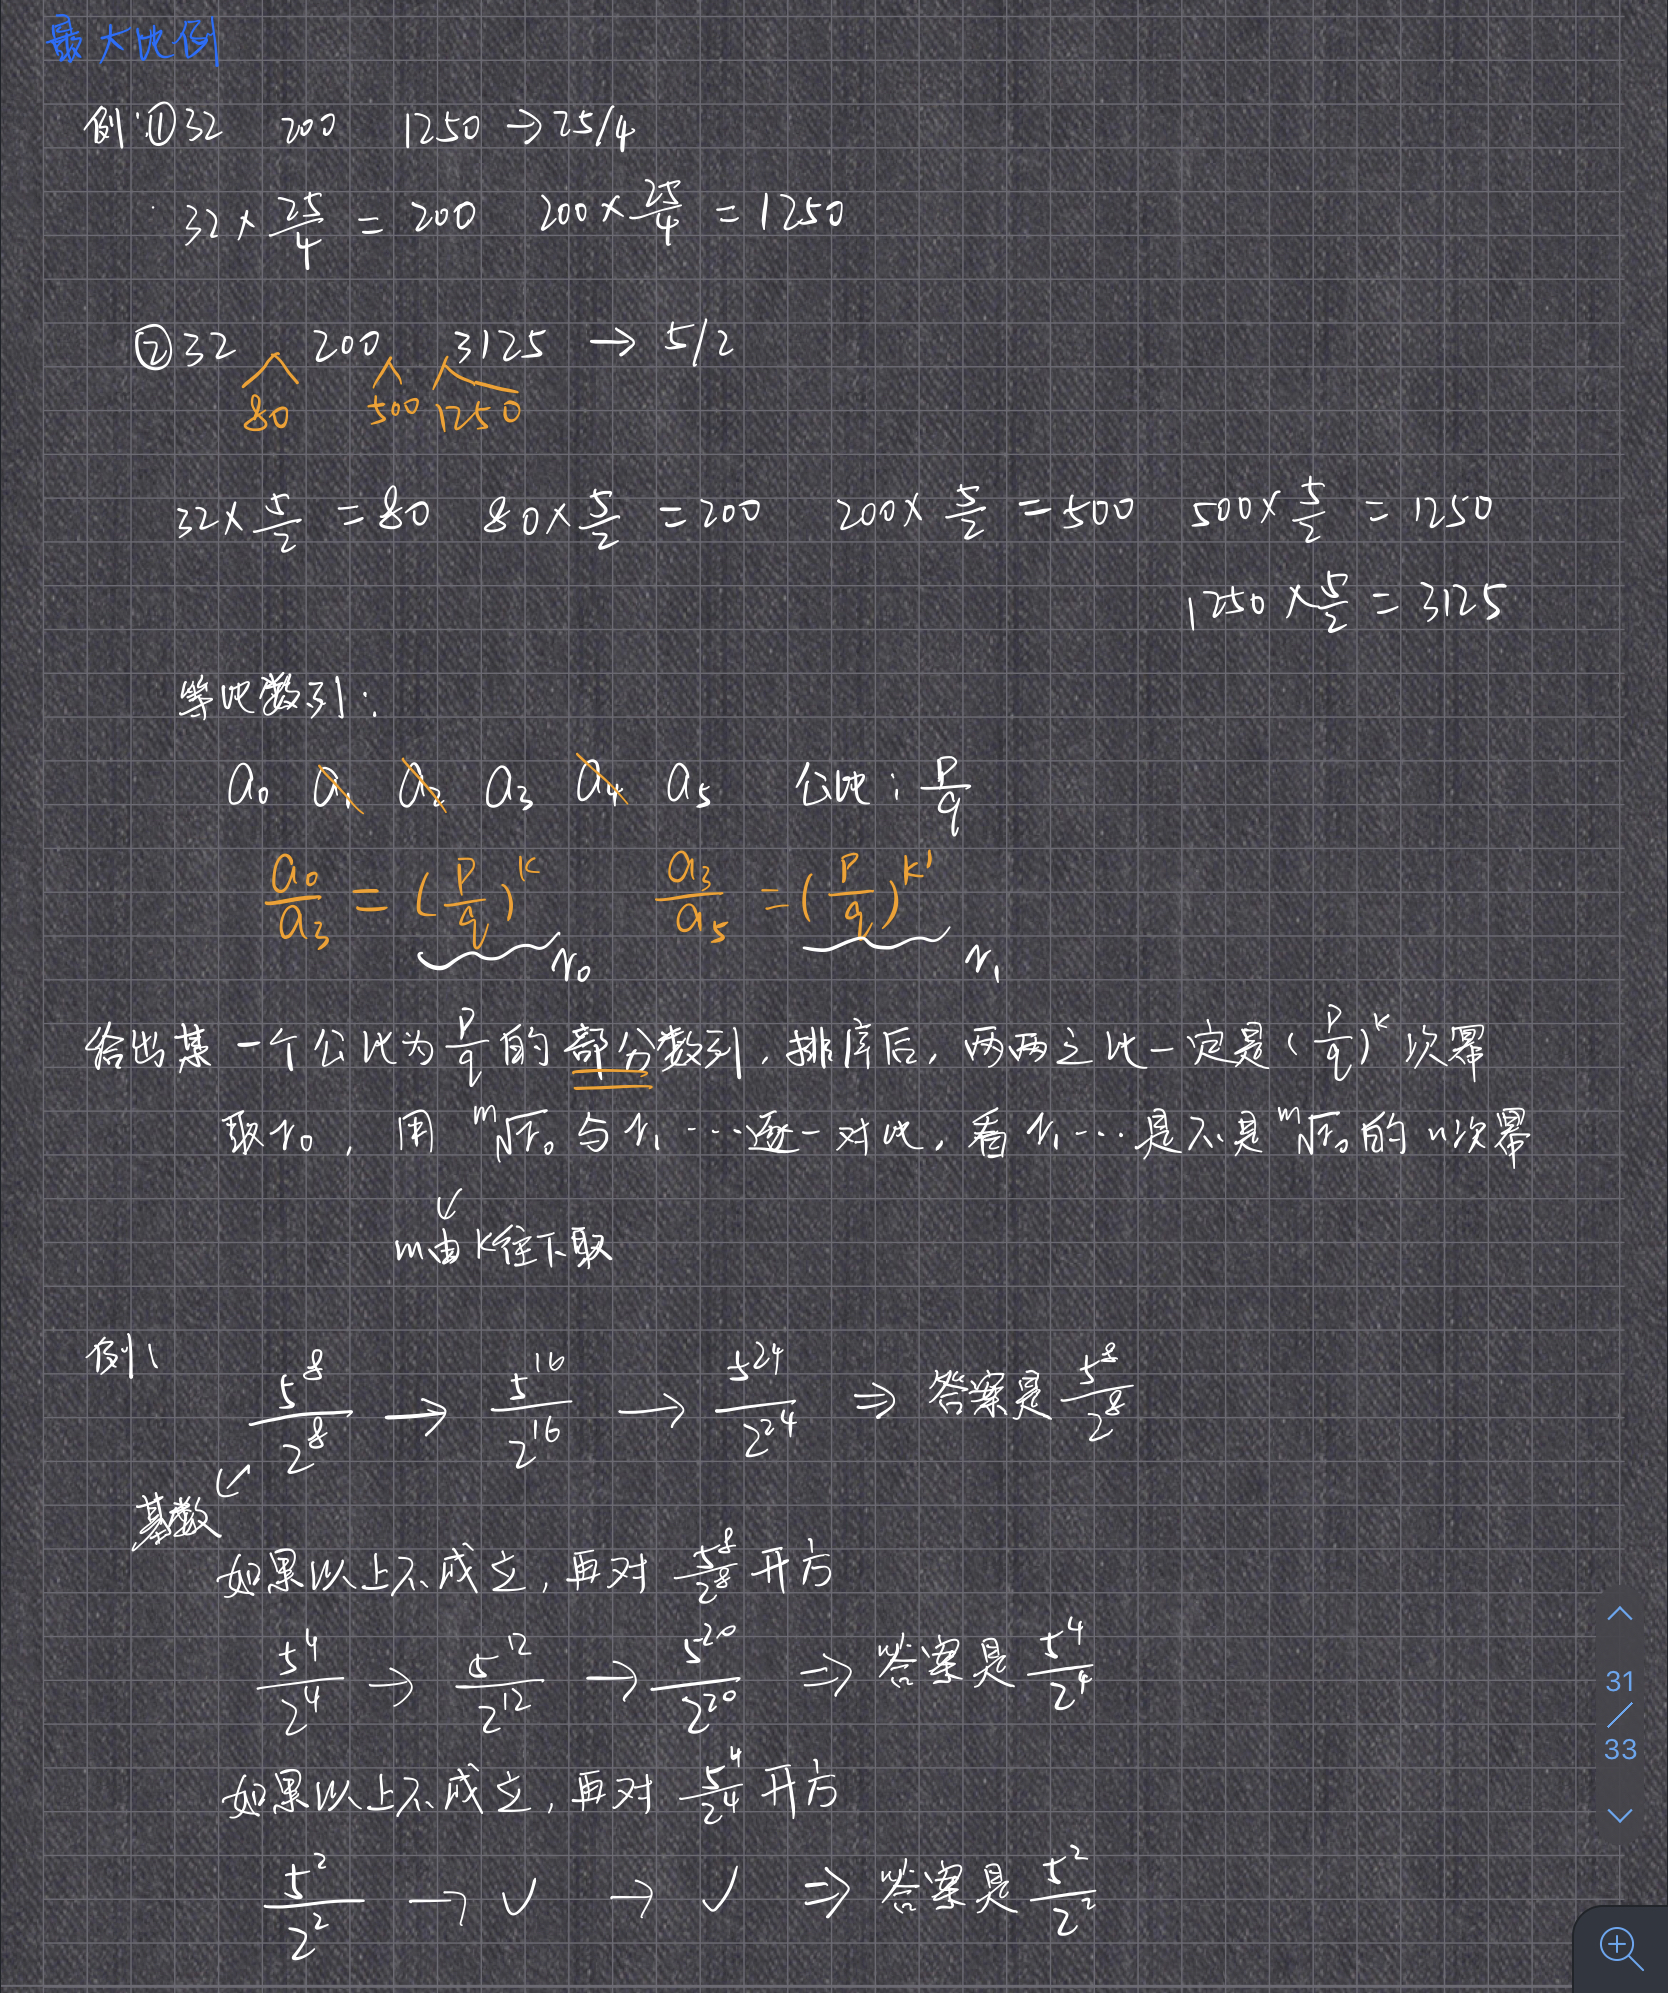 最大比例
例:①32 200 1250 → 25/4
32 × 25/4 = 200 200 × 25/4 = 1250
②32 200 3125 → 5/2
80 500 1250
32 × 5/2 = 80 80 × 5/2 = 200 200 × 5/2 = 500 500 × 5/2 = 1250
1250 × 5/2 = 3125
等比数列:
a₀ a₁ a₂ a₃ a₄ a₅ 公比: p/q
a₀/a₃ = (p/q)^k a₃/a₅ = (p/q)^k'
r₀ r₁
给出某一个公比为 p/q 的部分数列,排序后,两两之比一定是 (p/q)^k 次幂
取r₀, 用 ᵐ√r₀ 与 r₁ …逐一对比,看 r₁ … 是不是 ᵐ√r₀ 的 n次幂
↙
m由k往下取
例1
5⁸/2⁸ → 5¹⁶/2¹⁶ → 5²⁴/2²⁴ ⇒ 答案是 5⁸/2⁸
基数
如果以上不成立,再对 5⁸/2⁸ 开方
5⁴/2⁴ → 5¹²/2¹² → 5²⁰/2²⁰ ⇒ 答案是 5⁴/2⁴
如果以上不成立,再对 5⁴/2⁴ 开方
5²/2² → √ → √ ⇒ 答案是 5²/2²
31
/
33